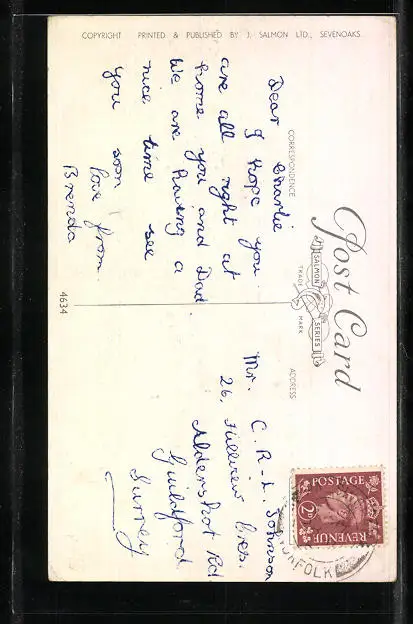 COPYRIGHT PRINTED & PUBLISHED BY J. SALMON LTD., SEVENOAKS
Post Card
SALMON SERIES
TRADE MARK
CORRESPONDENCE
ADDRESS
Dear Charlie
I hope you
are all right at
home you and Dad
We are having a
nice time see
you soon
love from
Brenda
4634
Mr. C. R. L. Johnson
26, Cres.
Aldershot Rd
Guildford
Surrey
POSTAGE
2D
REVENUE
NORFOLK